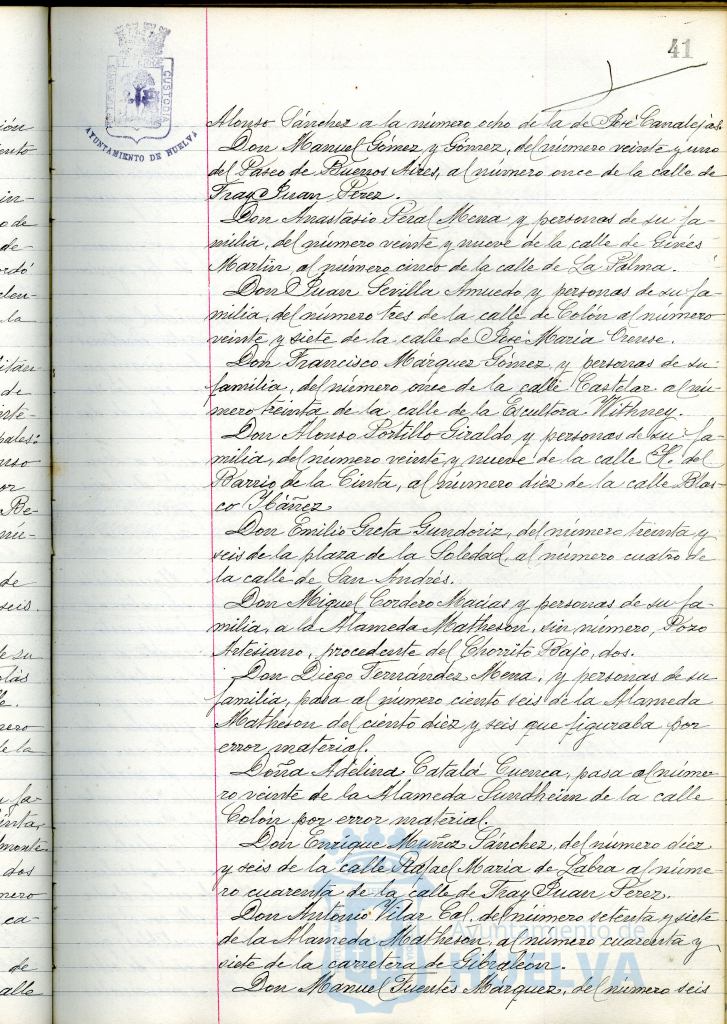 41
CUSTODIA
AYUNTAMIENTO DE HUELVA
Alonso Sánchez a la número ocho de la de José Canalejas
Don Manuel Gómez y Gómez, del número veinte y uno
del Paseo de Buenos Aires, al número once de la calle de
Fray Juan Pérez.
Don Anastasio Peral Mena y personas de su fa-
milia, del número veinte y nueve de la calle de Ginés
Martín, al número cinco de la calle de La Palma.
Don Juan Sevilla Amuedo y personas de su fa-
milia, del número tres de la calle de Colón al número
veinte y siete de la calle de José María Orense.
Don Francisco Márquez Gómez, y personas de su
familia, del número once de la calle Castelar al nú-
mero treinta de la calle de la Escultora Withney.
Don Alonso Portillo Giraldo y personas de su fa-
milia, del número veinte y nueve de la calle H. del
Barrio de la Cinta, al número diez de la calle Blas-
co Ybáñez
Don Emilio Greta Gundoriz, del número treinta y
seis de la plaza de la Soledad, al número cuatro de
la calle de San Andrés.
Don Miguel Cordero Macías y personas de su fa-
milia, a la Alameda Matheson, sin número, Pozo
Artesiano, procedente del Chorrito Bajo, dos.
Don Diego Fernández Mena, y personas de su
familia, pasa al número ciento seis de la Alameda
Matheson del ciento diez y seis que figuraba por
error material.
Doña Adelina Catalá Cuenca, pasa al núme-
ro veinte de la Alameda Sundheim de la calle
Colón por error material.
Don Enrique Muñoz Sánchez, del número diez
y seis de la calle Rafael María de Labra al núme-
ro cuarenta de la calle de Fray Juan Pérez.
Don Antonio Vilar Cal, del número setenta y siete
de la Alameda Matheson, al número cuarenta y
siete de la carretera de Gibraleón.
Don Manuel Fuentes Márquez, del número seis
Ayuntamiento de
HUELVA